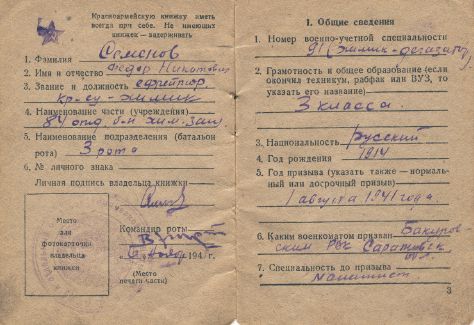 Красноармейскую книжку иметь
всегда при себе. Не имеющих
книжек — задерживать
1. Фамилия Семенов
2. Имя и отчество Федор
3. Звание и должность ефрейтор
химик
4. Наименование части (учреждения)
84 отд. б-н хим. защ
5. Наименование подразделения (батальон
рота) 3 рота
6. № личного знака
Личная подпись владельца книжки
Командир роты
194 г
(Место
печати части)
Место
для
фотокарточки
владельца
книжки
1. Общие сведения
1. Номер военно-учетной специальности
91 (химик-дегазатор)
2. Грамотность и общее образование (если
окончил техникум, рабфак или ВУЗ, то
указать его название)
3 класса.
3. Национальность Русский
4. Год рождения 1914
5. Год призыва (указать также — нормаль-
ный или досрочный призыв)
1 августа 1941 года
6. Каким военкоматом призван
ским РВК Саратовск
обл.
7. Специальность до призыва
3